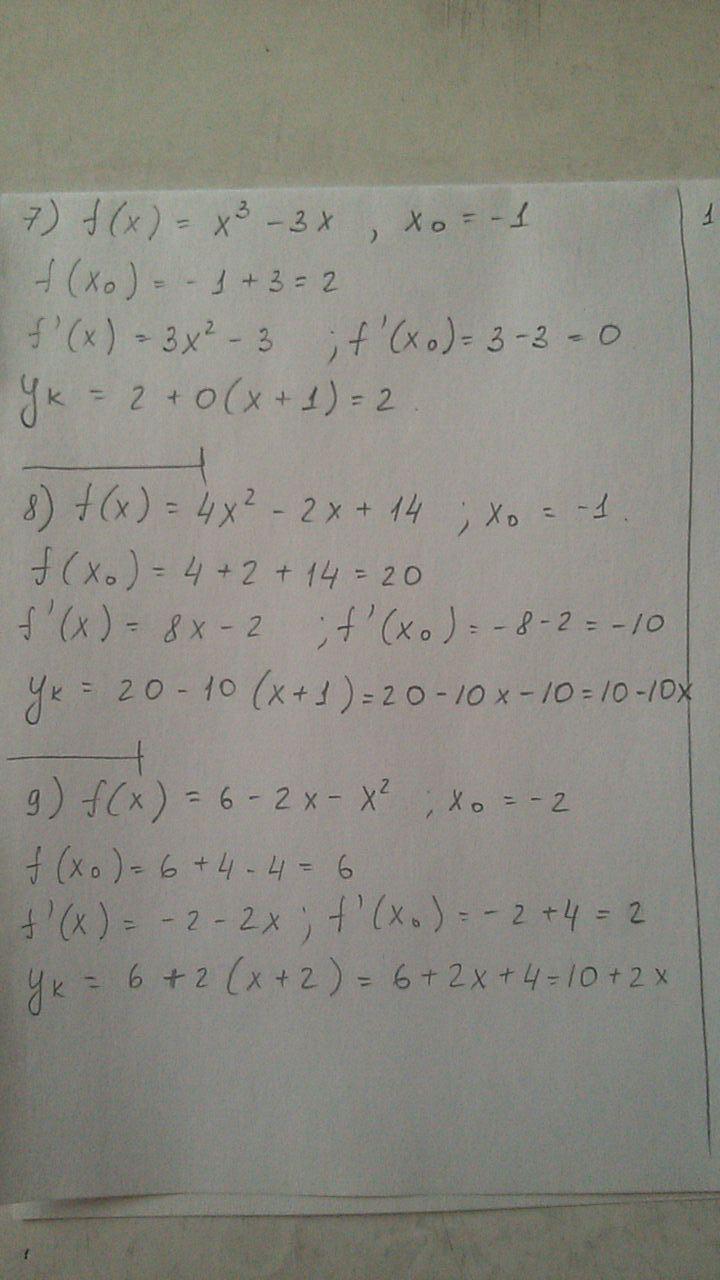 7) f(x) = x³ - 3x , x₀ = -1
f(x₀) = -1 + 3 = 2
f'(x) = 3x² - 3 ; f'(x₀) = 3 - 3 = 0
yк = 2 + 0(x + 1) = 2.
8) f(x) = 4x² - 2x + 14 ; x₀ = -1.
f(x₀) = 4 + 2 + 14 = 20
f'(x) = 8x - 2 ; f'(x₀) = -8 - 2 = -10
yк = 20 - 10(x + 1) = 20 - 10x - 10 = 10 - 10x
9) f(x) = 6 - 2x - x² ; x₀ = -2
f(x₀) = 6 + 4 - 4 = 6
f'(x) = -2 - 2x ; f'(x₀) = -2 + 4 = 2
yк = 6 + 2(x + 2) = 6 + 2x + 4 = 10 + 2x
1